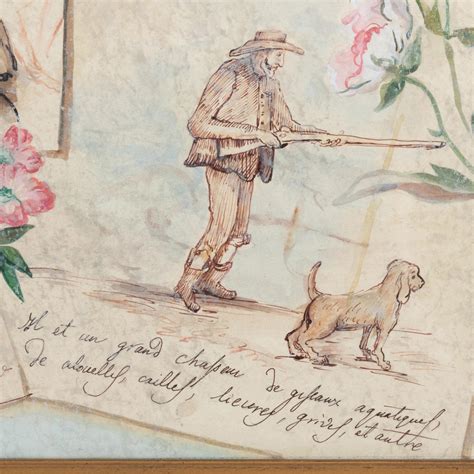 Il et un grand chasseur de aquatiques,
de alouelles, cailles, lievres, grives, et autre